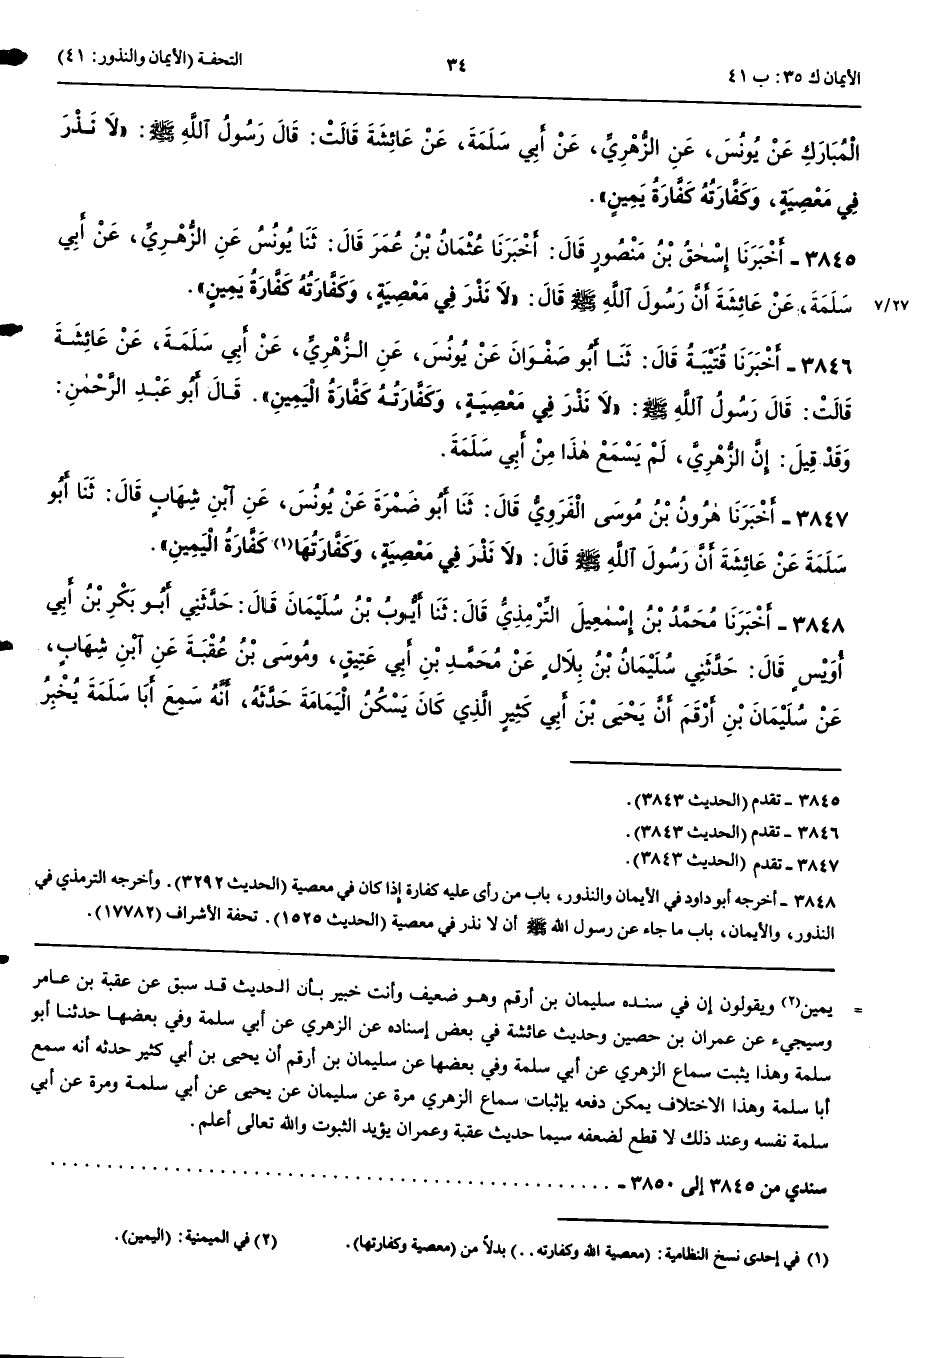 الأيمان ك ٣٥: ب ٤١
٣٤
التحفة (الأيمان والنذور: ٤١)
الْمُبَارَكِ عَنْ يُونُسَ، عَنِ الزُّهْرِيِّ، عَنْ أَبِي سَلَمَةَ، عَنْ عَائِشَةَ قَالَتْ: قَالَ رَسُولُ ٱللَّهِ ﷺ: «لَا نَذْرَ
فِي مَعْصِيَةٍ، وَكَفَّارَتُهُ كَفَّارَةُ يَمِينٍ».
٣٨٤٥ ـ أَخْبَرَنَا إِسْحٰقُ بْنُ مَنْصُورٍ قَالَ: أَخْبَرَنَا عُثْمَانُ بْنُ عُمَرَ قَالَ: ثَنَا يُونُسُ عَنِ الزُّهْرِيِّ، عَنْ أَبِي
سَلَمَةَ، عَنْ عَائِشَةَ أَنَّ رَسُولَ ٱللَّهِ ﷺ قَالَ: «لَا نَذْرَ فِي مَعْصِيَةٍ، وَكَفَّارَتُهُ كَفَّارَةُ يَمِينٍ».
٧/٢٧
٣٨٤٦ ـ أَخْبَرَنَا قُتَيْبَةُ قَالَ: ثَنَا أَبُو صَفْوَانَ عَنْ يُونُسَ، عَنِ الزُّهْرِيِّ، عَنْ أَبِي سَلَمَةَ، عَنْ عَائِشَةَ
قَالَتْ: قَالَ رَسُولُ ٱللَّهِ ﷺ: «لَا نَذْرَ فِي مَعْصِيَةٍ، وَكَفَّارَتُهُ كَفَّارَةُ الْيَمِينِ». قَالَ أَبُو عَبْدِ الرَّحْمٰنِ:
وَقَدْ قِيلَ: إِنَّ الزُّهْرِيَّ، لَمْ يَسْمَعْ هٰذَا مِنْ أَبِي سَلَمَةَ.
٣٨٤٧ ـ أَخْبَرَنَا هٰرُونُ بْنُ مُوسَى الْفَرَوِيُّ قَالَ: ثَنَا أَبُو ضَمْرَةَ عَنْ يُونُسَ، عَنِ ٱبْنِ شِهَابٍ قَالَ: ثَنَا أَبُو
سَلَمَةَ عَنْ عَائِشَةَ أَنَّ رَسُولَ ٱللَّهِ ﷺ قَالَ: «لَا نَذْرَ فِي مَعْصِيَةٍ، وَكَفَّارَتُهَا(١) كَفَّارَةُ الْيَمِينِ».
٣٨٤٨ ـ أَخْبَرَنَا مُحَمَّدُ بْنُ إِسْمٰعِيلَ التِّرْمِذِيُّ قَالَ: ثَنَا أَيُّوبُ بْنُ سُلَيْمَانَ قَالَ: حَدَّثَنِي أَبُو بَكْرِ بْنُ أَبِي
أُوَيْسٍ قَالَ: حَدَّثَنِي سُلَيْمَانُ بْنُ بِلَالٍ عَنْ مُحَمَّدِ بْنِ أَبِي عَتِيقٍ، ومُوسَى بْنُ عُقْبَةَ عَنِ ٱبْنِ شِهَابٍ،
عَنْ سُلَيْمَانَ بْنِ أَرْقَمَ أَنَّ يَحْيَى بْنَ أَبِي كَثِيرٍ الَّذِي كَانَ يَسْكُنُ الْيَمَامَةَ حَدَّثَهُ، أَنَّهُ سَمِعَ أَبَا سَلَمَةَ يُخْبِرُ
٣٨٤٥ ـ تقدم (الحديث ٣٨٤٣).
٣٨٤٦ ـ تقدم (الحديث ٣٨٤٣).
٣٨٤٧ ـ تقدم (الحديث ٣٨٤٣).
٣٨٤٨ ـ أخرجه أبو داود في الأيمان والنذور، باب من رأى عليه كفارة إذا كان في معصية (الحديث ٣٢٩٢). وأخرجه الترمذي في
النذور، والأيمان، باب ما جاء عن رسول الله ﷺ أن لا نذر في معصية (الحديث ١٥٢٥). تحفة الأشراف (١٧٧٨٢).
= يمين(٢) ويقولون إن في سنده سليمان بن أرقم وهو ضعيف وأنت خبير بأن الحديث قد سبق عن عقبة بن عامر
وسيجيء عن عمران بن حصين وحديث عائشة في بعض إسناده عن الزهري عن أبي سلمة وفي بعضها حدثنا أبو
سلمة وهذا يثبت سماع الزهري عن أبي سلمة وفي بعضها عن سليمان بن أرقم أن يحيى بن أبي كثير حدثه أنه سمع
أبا سلمة وهذا الاختلاف يمكن دفعه بإثبات سماع الزهري مرة عن سليمان عن يحيى عن أبي سلمة ومرة عن أبي
سلمة نفسه وعند ذلك لا قطع لضعفه سيما حديث عقبة وعمران يؤيد الثبوت والله تعالى أعلم.
سندي من ٣٨٤٥ إلى ٣٨٥٠ ـ ...............................................
(١) في إحدى نسخ النظامية: (معصية الله وكفارته . .) بدلاً من (معصية وكفارتها).
(٢) في الميمنية: (اليمين).